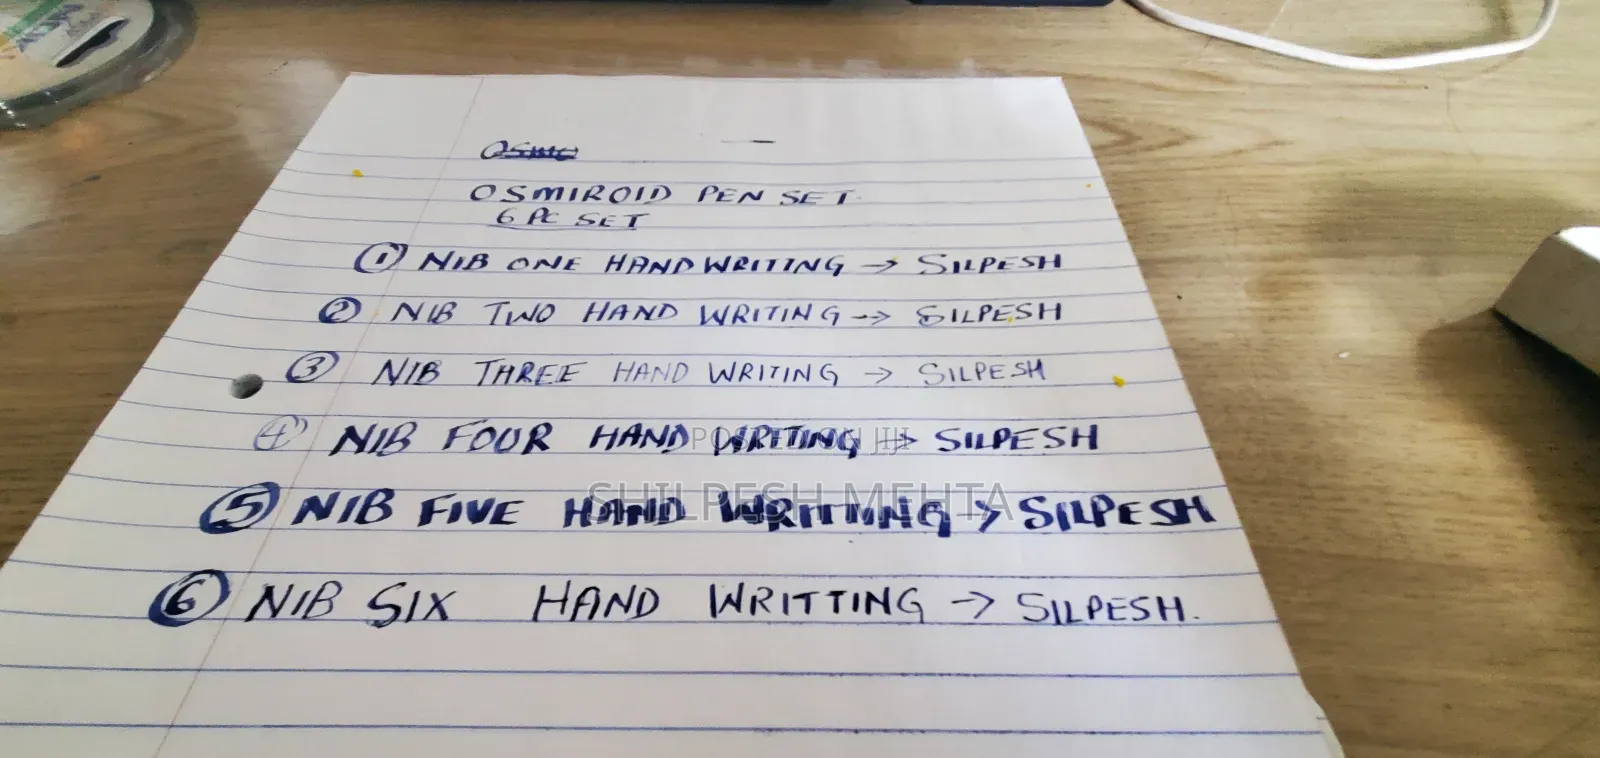 OSMIROID PEN SET.
6 PC SET
① NIB ONE HANDWRITING → SILPESH
② NIB TWO HAND WRITING → SILPESH
③ NIB THREE HAND WRITING → SILPESH
④ NIB FOUR HAND WRITING → SILPESH
POSTED ON JIJI
SHILPESH MEHTA
⑤ NIB FIVE HAND WRITNNG → SILPESH
⑥ NIB SIX HAND WRITTING → SILPESH.